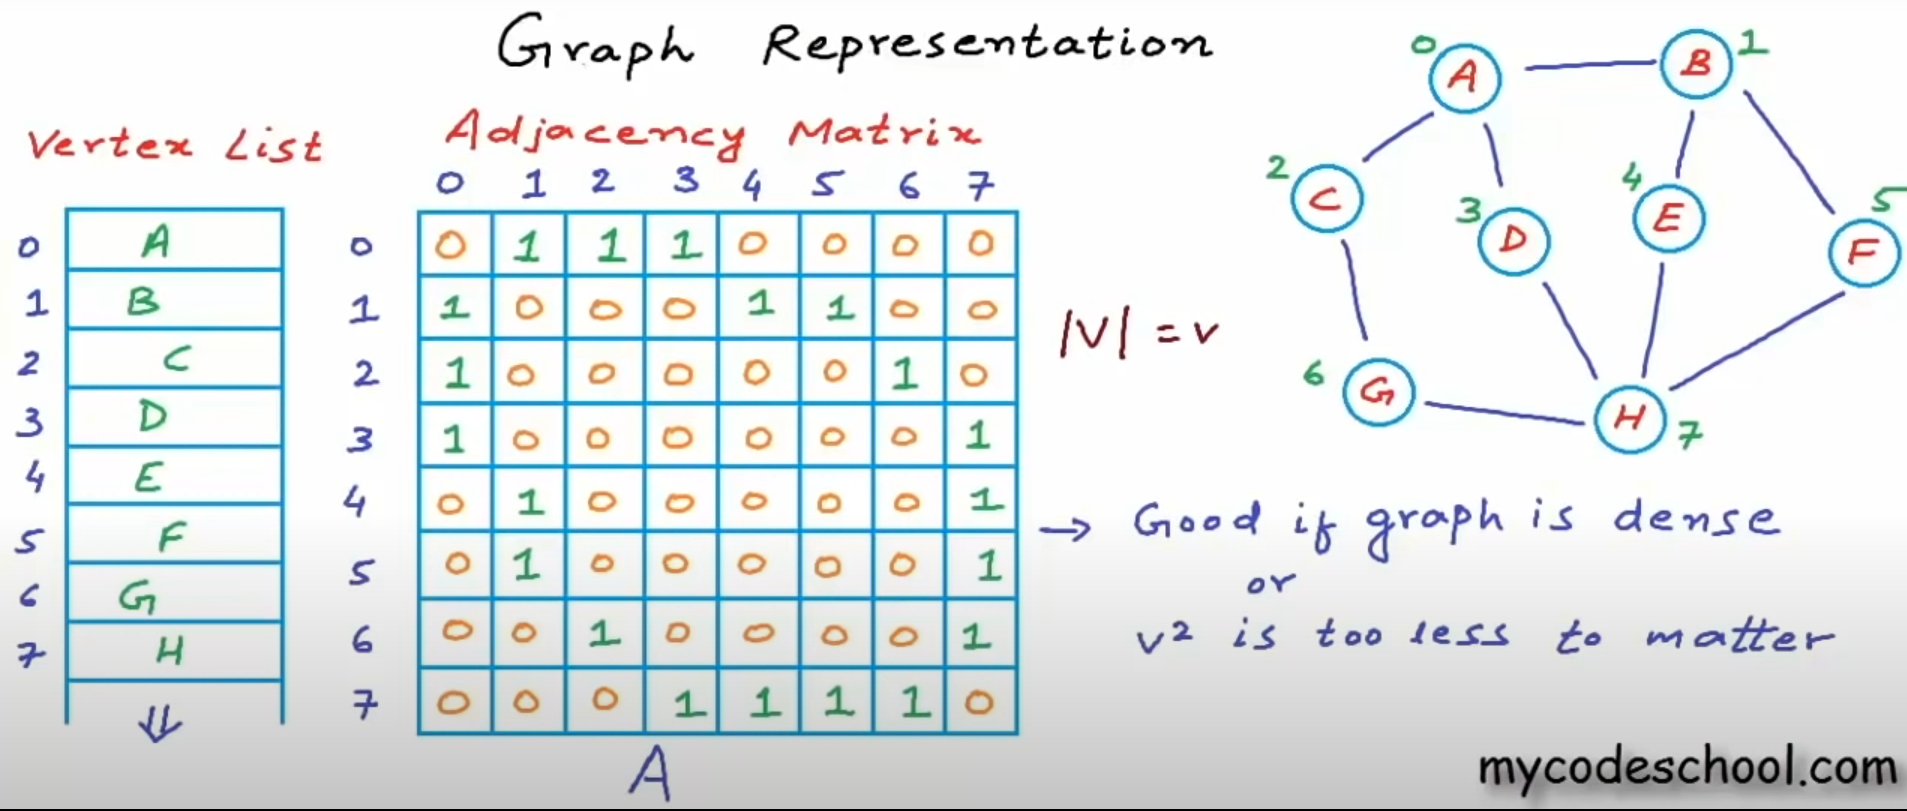 Graph Representation
Vertex List
0 A
1 B
2 C
3 D
4 E
5 F
6 G
7 H
Adjacency Matrix
0 1 2 3 4 5 6 7
0 0 1 1 1 0 0 0 0
1 1 0 0 0 1 1 0 0
2 1 0 0 0 0 0 1 0
3 1 0 0 0 0 0 0 1
4 0 1 0 0 0 0 0 1
5 0 1 0 0 0 0 0 1
6 0 0 1 0 0 0 0 1
7 0 0 0 1 1 1 1 0
A
|V| = v
0 A
B 1
2 C
3 D
4 E
5 F
6 G
H 7
→ Good if graph is dense
or
v² is too less to matter
mycodeschool.com